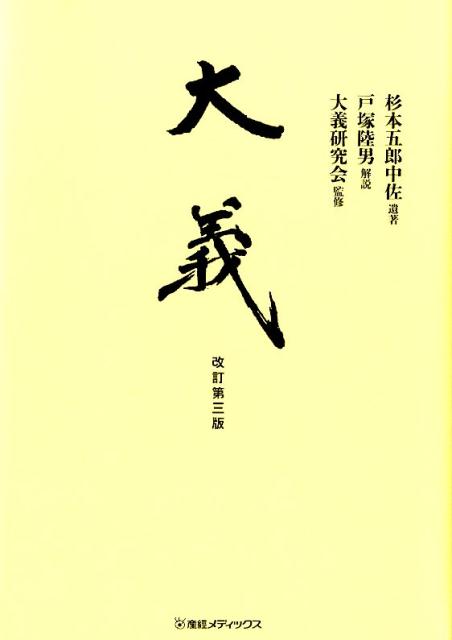 杉本五郎中佐 遺著
戸塚陸男 解説
大義研究会 監修
大義
改訂第三版
産経メディックス